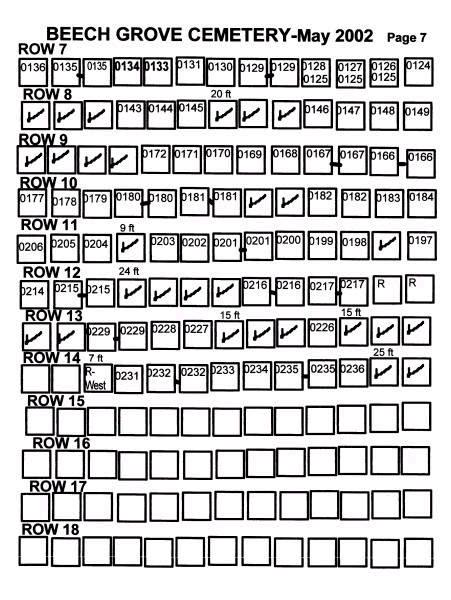 BEECH GROVE CEMETERY-May 2002 Page 7
ROW 7
0136 0135 0135 0134 0133 0131 0130 0129 0129 0128 0127 0126 0124
0125 0125 0125
ROW 8 20 ft
0143 0144 0145 0146 0147 0148 0149
ROW 9
0172 0171 0170 0169 0168 0167 0167 0166 0166
ROW 10
0177 0178 0179 0180 0180 0181 0181 0182 0182 0183 0184
ROW 11 9 ft
0206 0205 0204 0203 0202 0201 0201 0200 0199 0198 0197
ROW 12 24 ft
0214 0215 0215 0216 0216 0217 0217 R R
ROW 13 15 ft 15 ft
0229 0229 0228 0227 0226
ROW 14 7 ft 25 ft
R-West 0231 0232 0232 0233 0234 0235 0235 0236
ROW 15
ROW 16
ROW 17
ROW 18